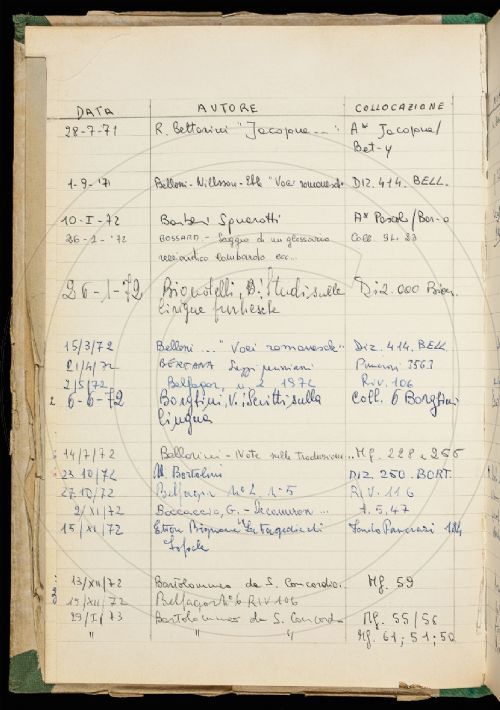 DATA AUTORE COLLOCAZIONE
28-7-71 R. Bettarini "Jacopone...": Aº Jacopone/
Bet-y
1-9-'71 Belloni-Nillsson-Ehle "Voci romanesche DIZ. 414. BELL.
10-I-72 Barberi Squarotti Aº Pascoli/Bar-a
26-1-'72 BOSSARD - Saggio di un glossario Coll. 94. 23
dell'antico lombardo ecc...
26-1-72 B. Studi sulle Diz. 000
lingue furbesche
15/3/72 Belloni ..." Voci romanesche" Diz. 414. BELL
21/4/72 BERTANA Saggi Pancrazi 3563
2/5/72 Belfagor, n. 2 1972 RIV. 106
6-6-72 Borghini, V. : Scritti sulla Coll. 6 Borghini
lingua
14/7/72 Ballerini - Note sulle traduzioni... Mf. 228 e 256
23.10/72 M. Bortolini DIZ 250. BORT.
27.10/72 Belfagor nº 2. nº 5 RIV. 116
2/XI/72 Boccaccio, G. - Decameron ... A. 5.47
15/XI/72 Ettore Bignone "La Tragedie di Fondo Pancrazi 184
Sofocle
13/XII/72 Bartolommeo da S. Concordio. Mf. 59
14/XII/72 Belfagor Nº 6 RIV 106
29/I/73 Bartolommeo da S. Concordio Mf. 55/56
" " " Mf. 61; 51; 50